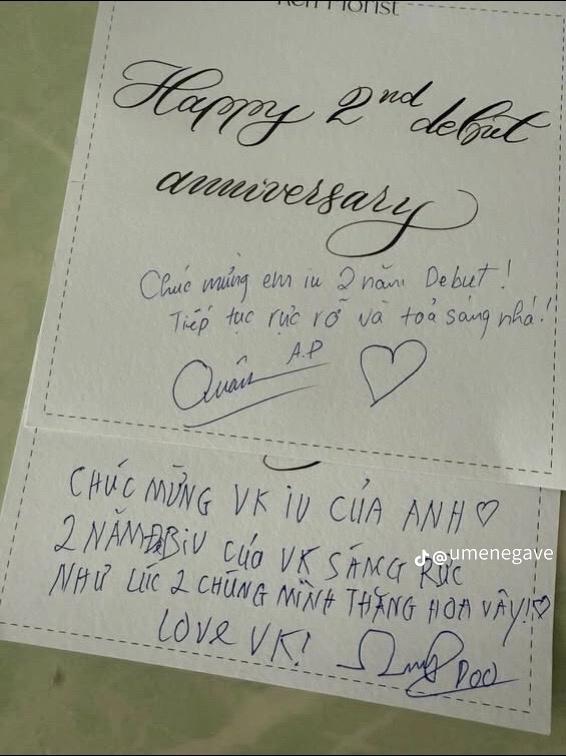 Ken Florist
Happy 2nd debut
anniversary
Chúc mừng em iu 2 năm Debut!
Tiếp tục rực rỡ và toả sáng nhá!
Quân A.P
CHÚC MỪNG VK IU CỦA ANH ♡
2 NĂM ĐBIU CỦA VK SÁNG RỰC
@umenegave
NHƯ LÚC 2 CHÚNG MÌNH THĂNG HOA VẬY! ♡
LOVE VK!